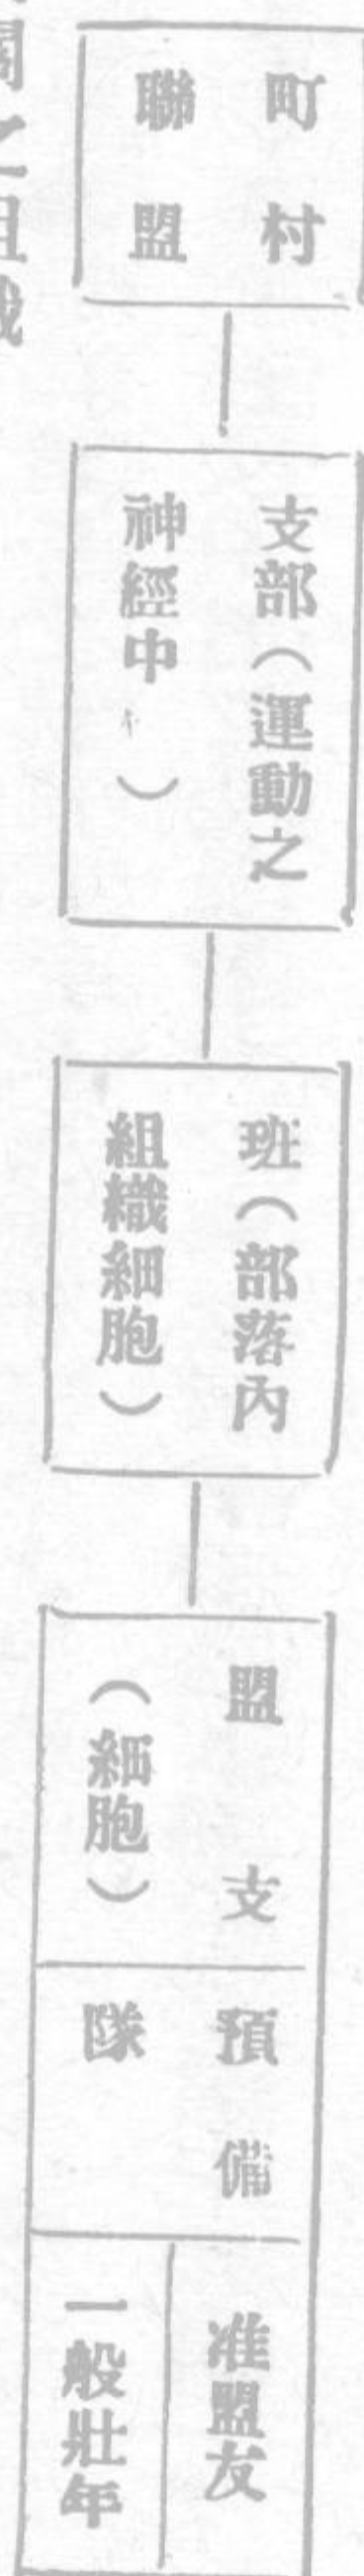 町村
聯盟
支部（運動之
神經中　）
班（部落內
組織細胞）
盟支
（細胞）
預備
隊
准盟友
一般壯年
之組